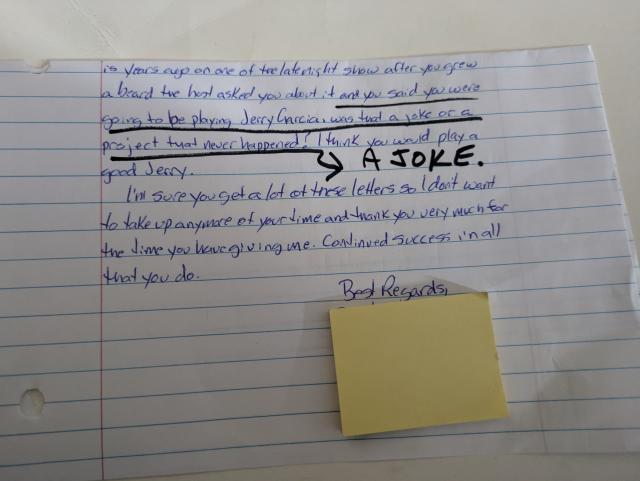 is years ago on one of the latenight show after you grew
a beard the host asked you about it and you said you were
going to be playing Jerry Garcia, was that a joke or a
project that never happened? I think you would play a
A JOKE.
good Jerry.
I'm sure you get a lot of these letters so I don't want
to take up anymore of your time and thank you very much for
the time you have giving me. Continued success in all
that you do.
Best Regards,